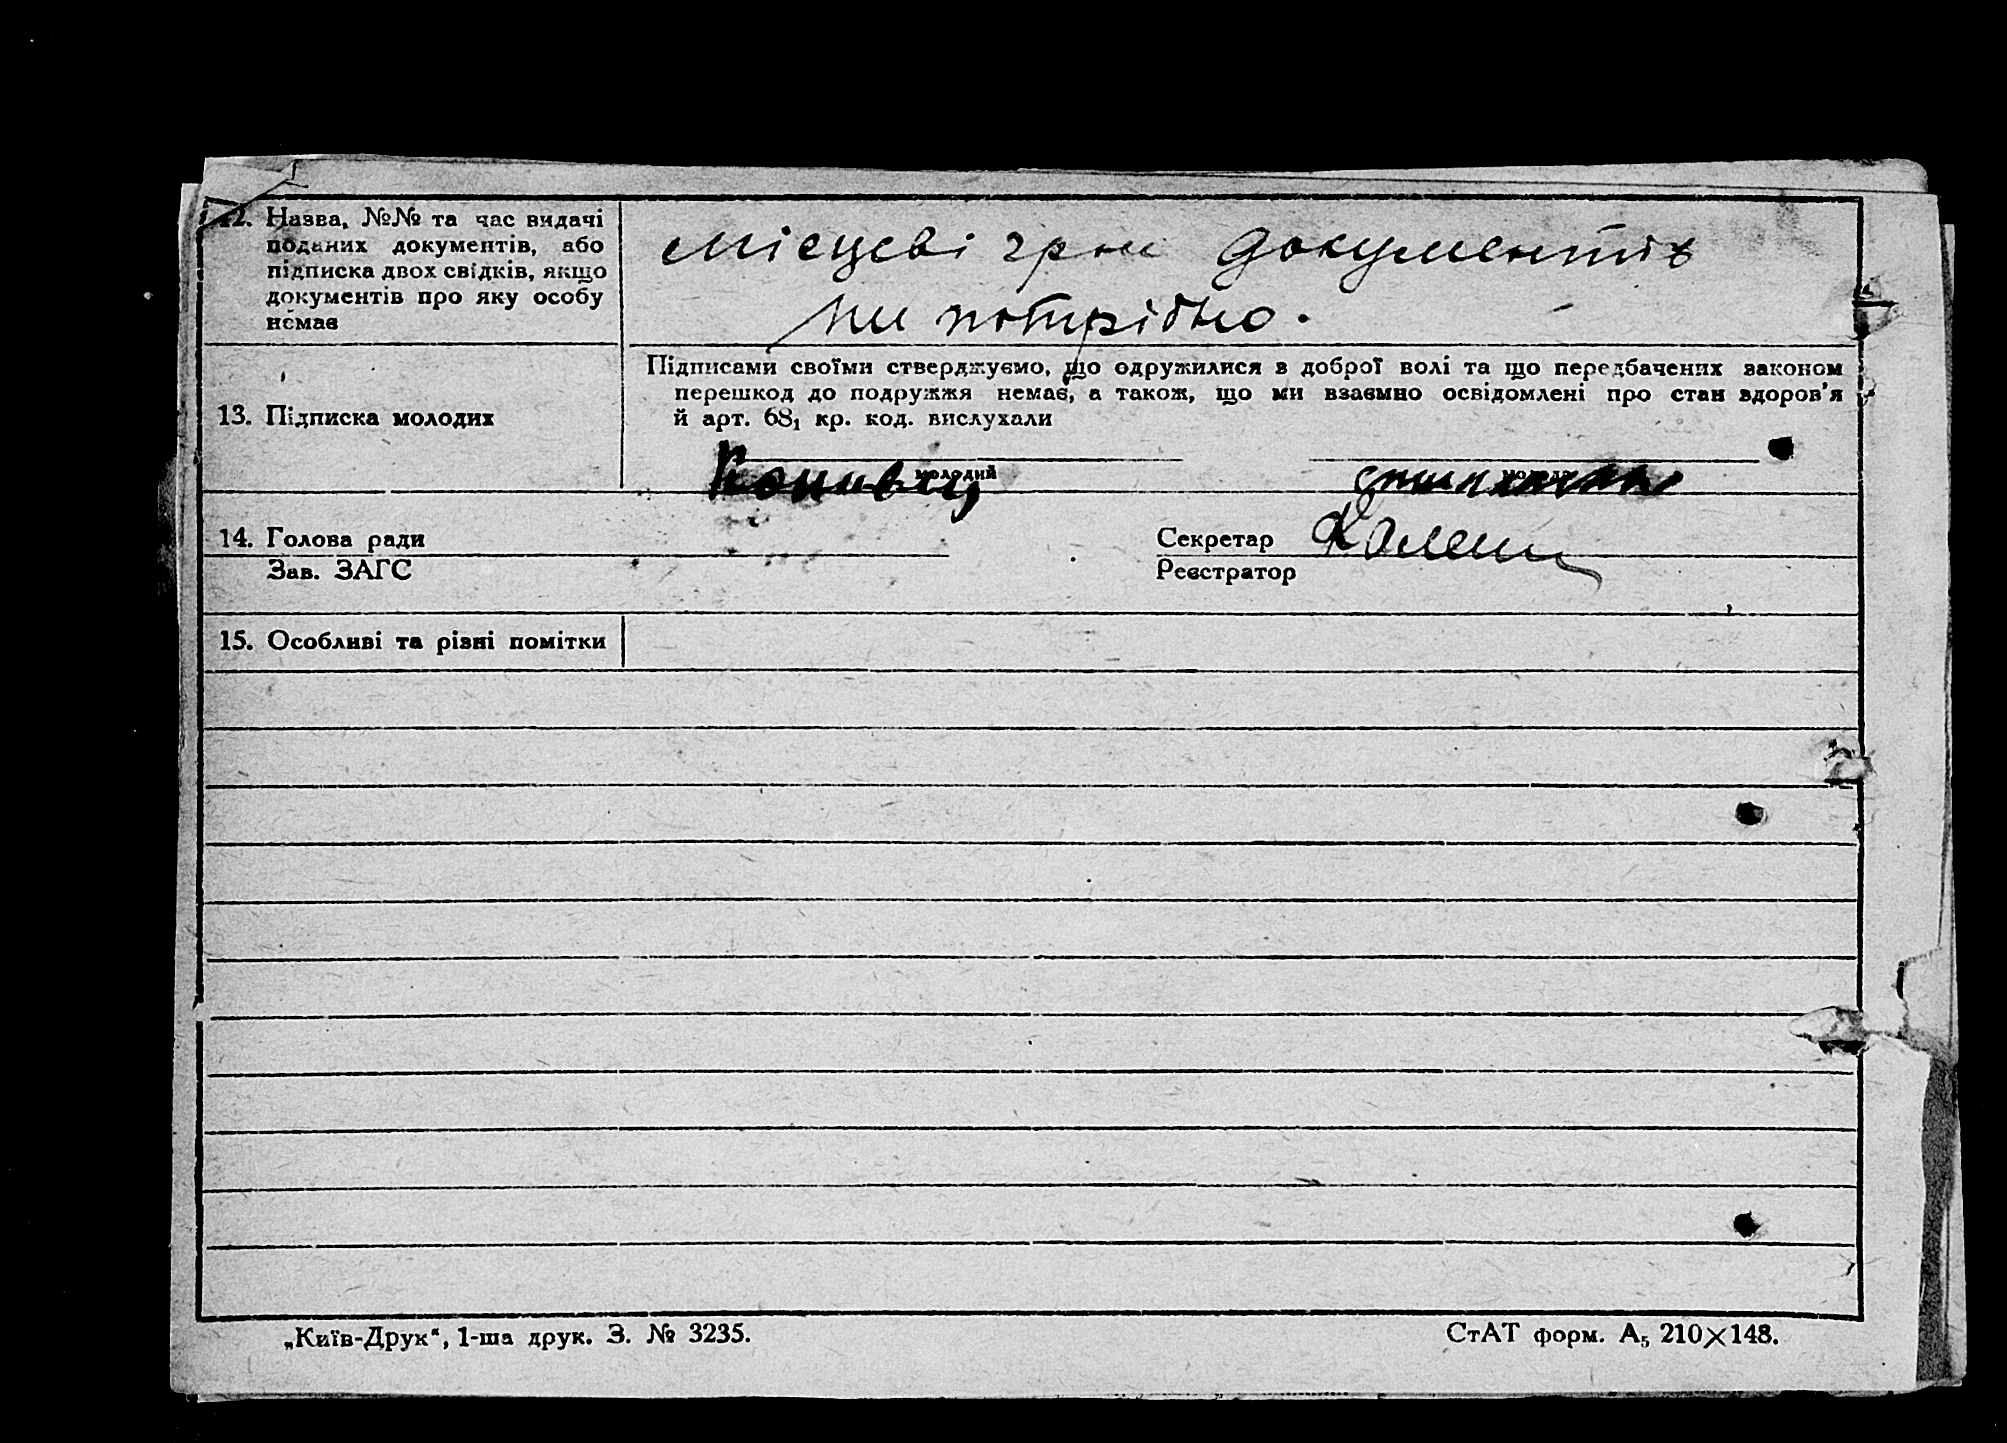 12. Назва, №№ та час видачі
поданих документів, або
підписка двох свідків, якщо
документів про яку особу
немає
місцеві гром документів
ни потрібно.
13. Підписка молодих
Підписами своїми стверджуємо, що одружилися в доброї волі та що передбачених законом
перешкод до подружжя немає, а також, що ми взаємно освідомлені про стан здоров'я
й арт. 68₁ кр. код. вислухали
молодий
молода
14. Голова ради
Зав. ЗАГС
Секретар
Реєстратор
15. Особливі та різні помітки
„Київ-Друк“, 1-ша друк. З. № 3235.
СтАТ форм. А₅ 210×148.